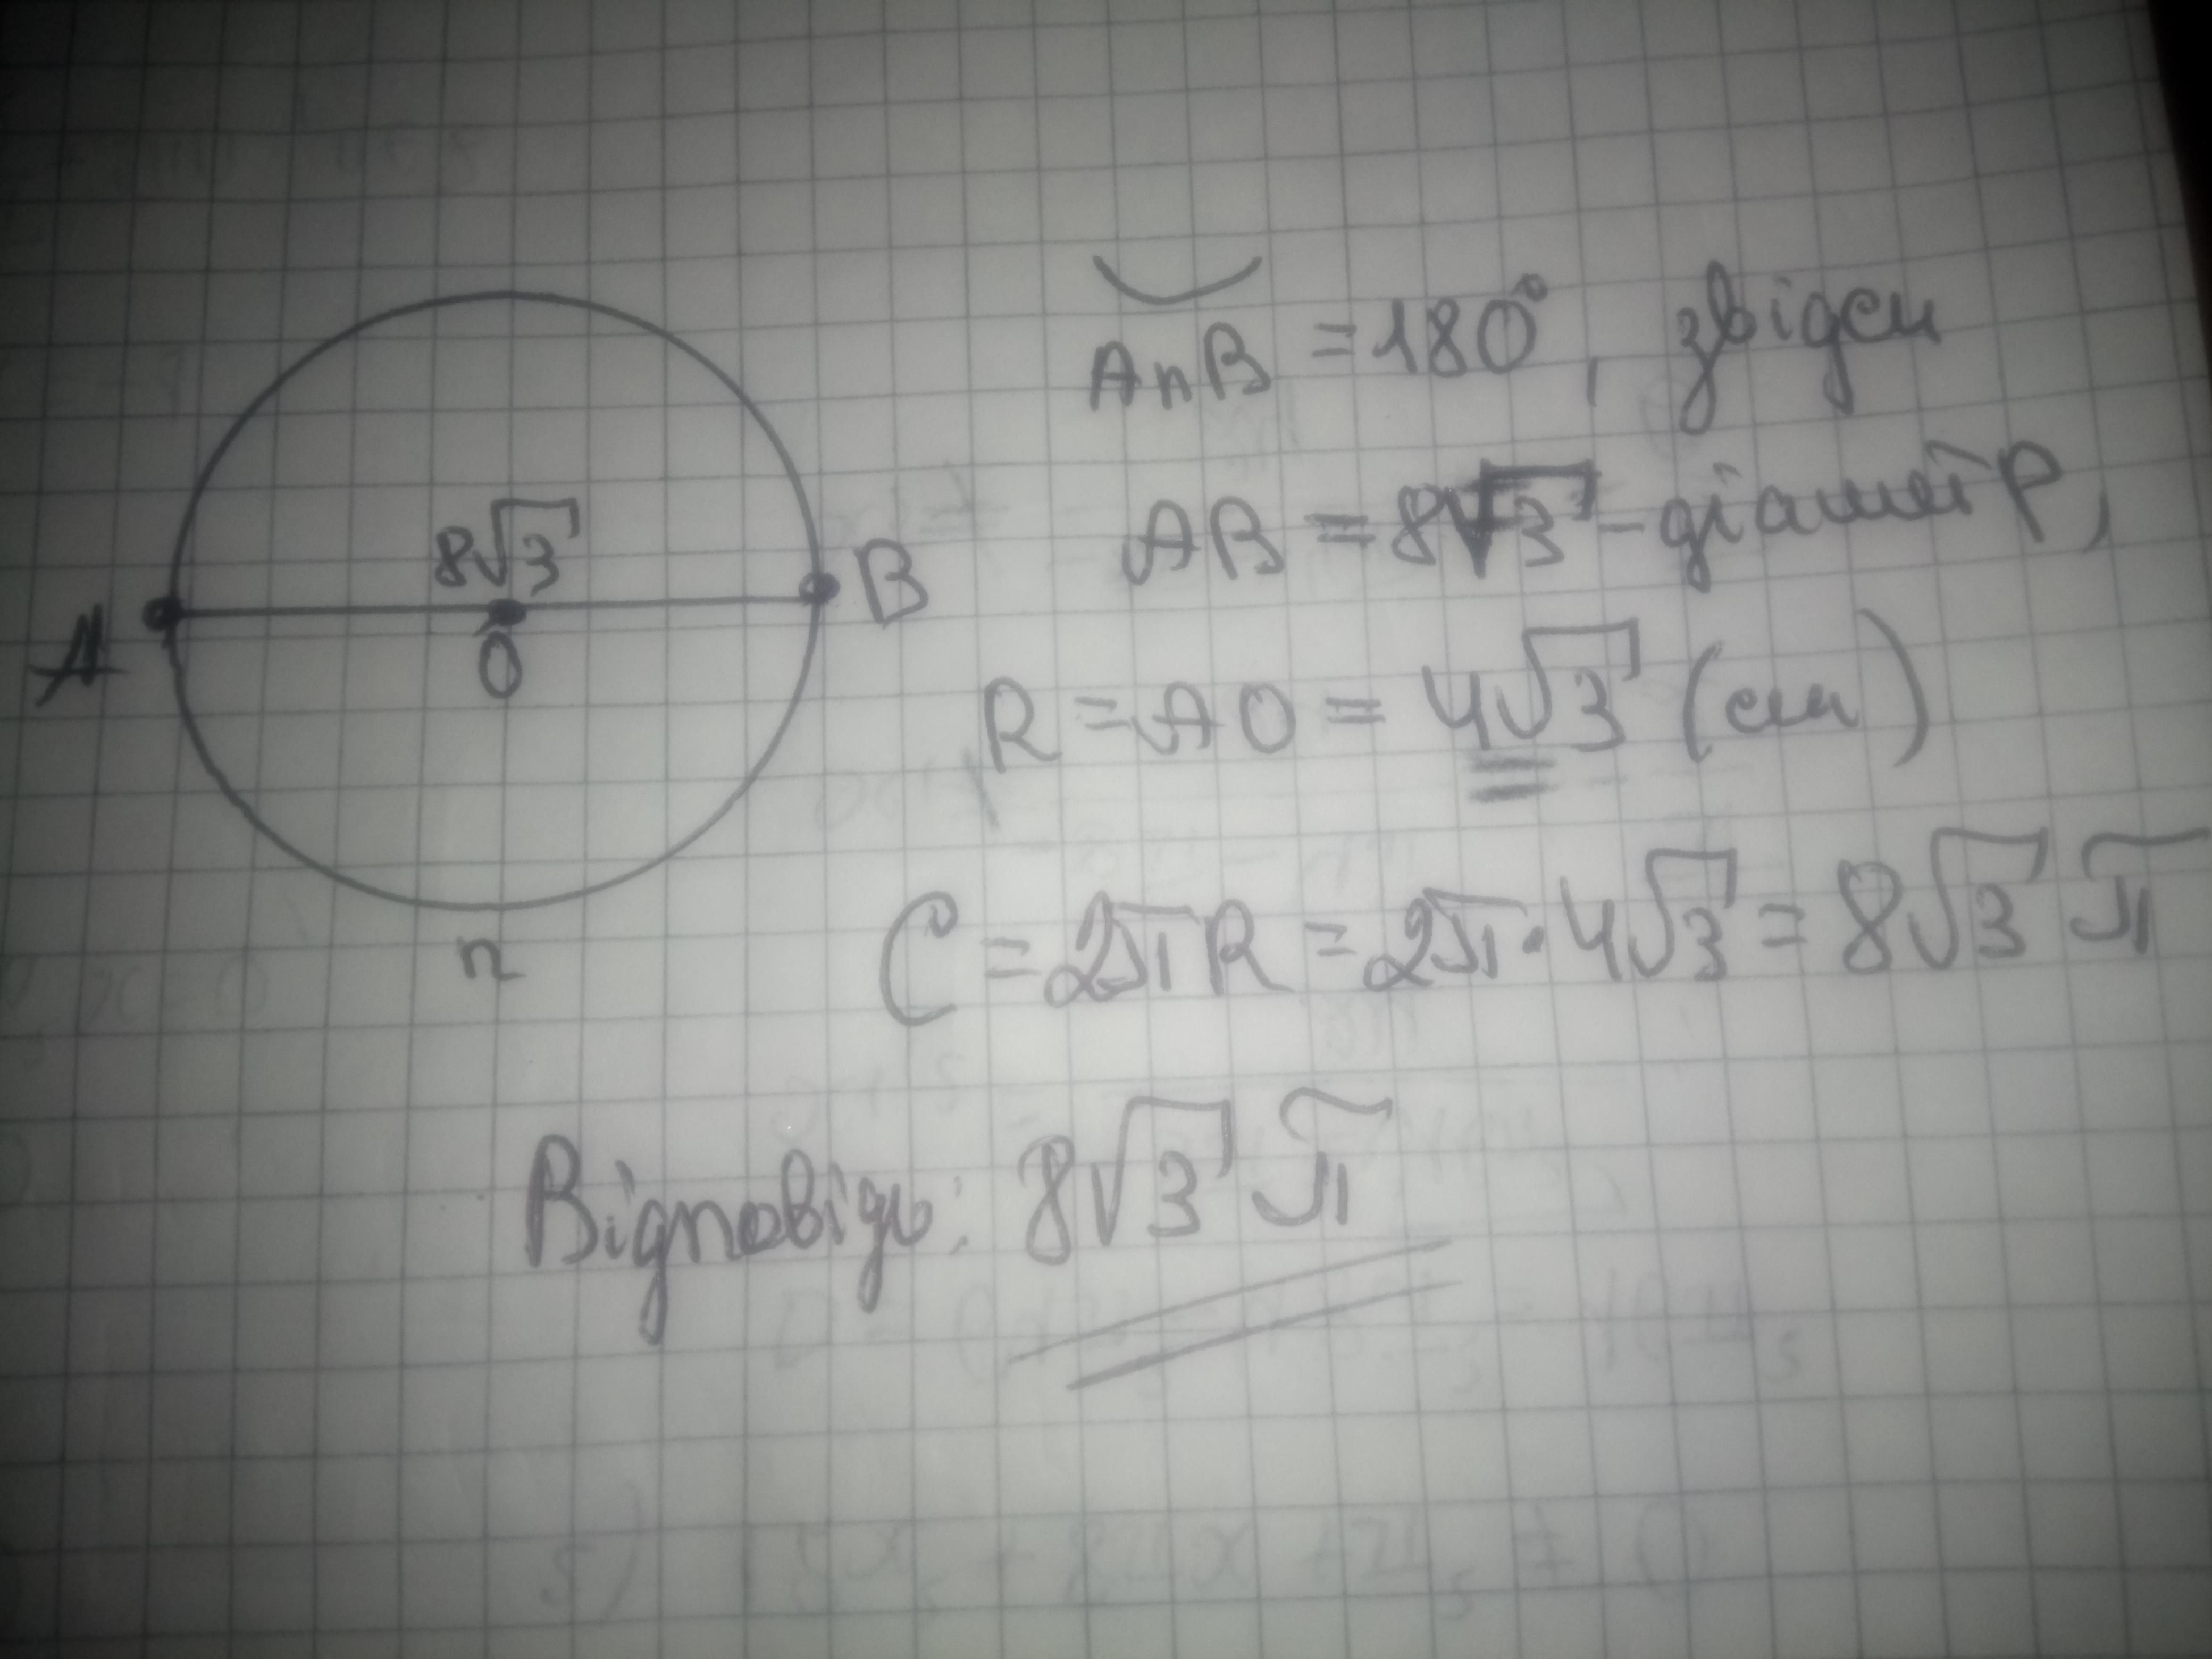 A
8√3
O
B
n
AnB = 180°, звідси
AB = 8√3 - діаметр,
R = AO = 4√3 (см)
C = 2πR = 2π · 4√3 = 8√3 π
Відповідь: 8√3 π